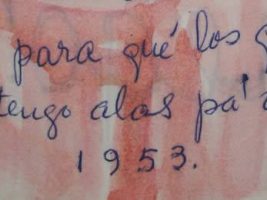 para qué los
tengo alas pa'
1953.